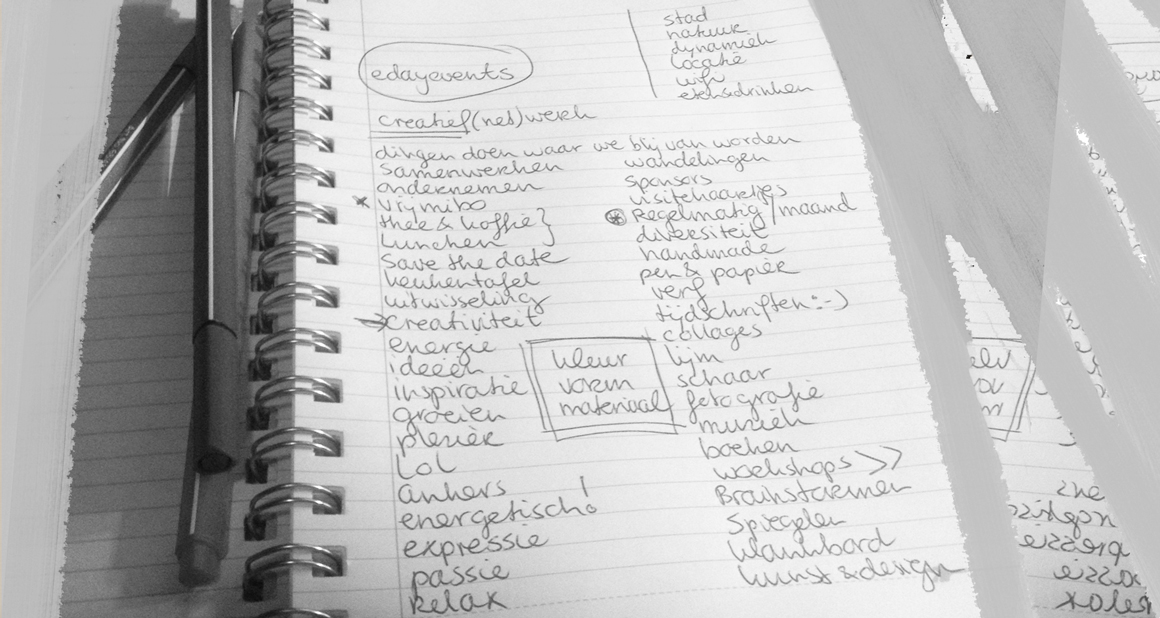 edayevents
creatief(net)werk
dingen doen waar we blij van worden
samenwerken
ondernemen
vrymibo
thee & koffie
Lunchen
Save the date
keukentafel
uitwisseling
creativiteit
energie
ideeën
inspiratie
groeien
plezier
LoL
ankers
energetisch!
expressie
passie
Relax
kleur
vorm
materiaal
stad
natuur
dynamiek
locatie
wifi
eten&drinken
wandelingen
Sponsors
visitekaartjes
Regelmatig/maand
diversiteit
handmade
pen & papier
verf
tijdschriften :-)
collages
lijm
schaar
fotografie
muziek
boeken
workshops >>
Brainstormen
Spiegelen
klankbord
kunst & design